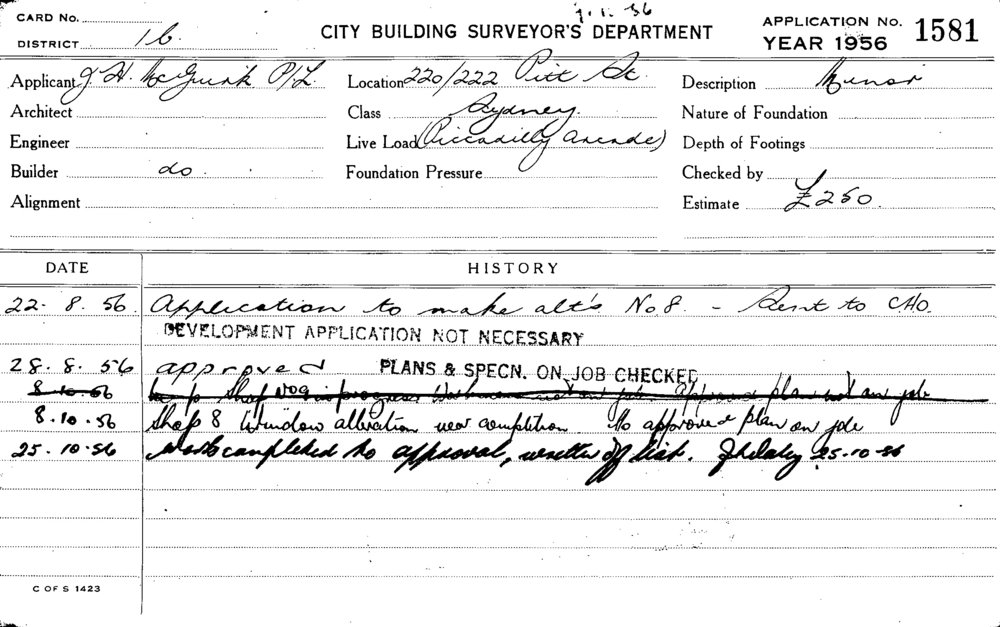 CARD No.
7.1.56
CITY BUILDING SURVEYOR'S DEPARTMENT
APPLICATION No. 1581
DISTRICT 16
YEAR 1956
Applicant J. H. P/L. Location 220/222 Pitt St. Description Minor
Architect Class Sydney. Nature of Foundation
Engineer Live Load (Piccadilly Arcade) Depth of Footings
Builder do. Foundation Pressure Checked by
Alignment Estimate £250.
DATE HISTORY
22. 8. 56. Application to make alt's No 8. - Sent to C.H.O.
DEVELOPMENT APPLICATION NOT NECESSARY
28. 8. 56 approved PLANS & SPECN. ON JOB CHECKED
8.10.56 Shop No in progress job. Approved plan not on job
8.10.56 Shop 8 Window alteration near completion. No approved plan on job
25.10.56 Work completed to approval, written off list. 25.10.56
C OF S 1423